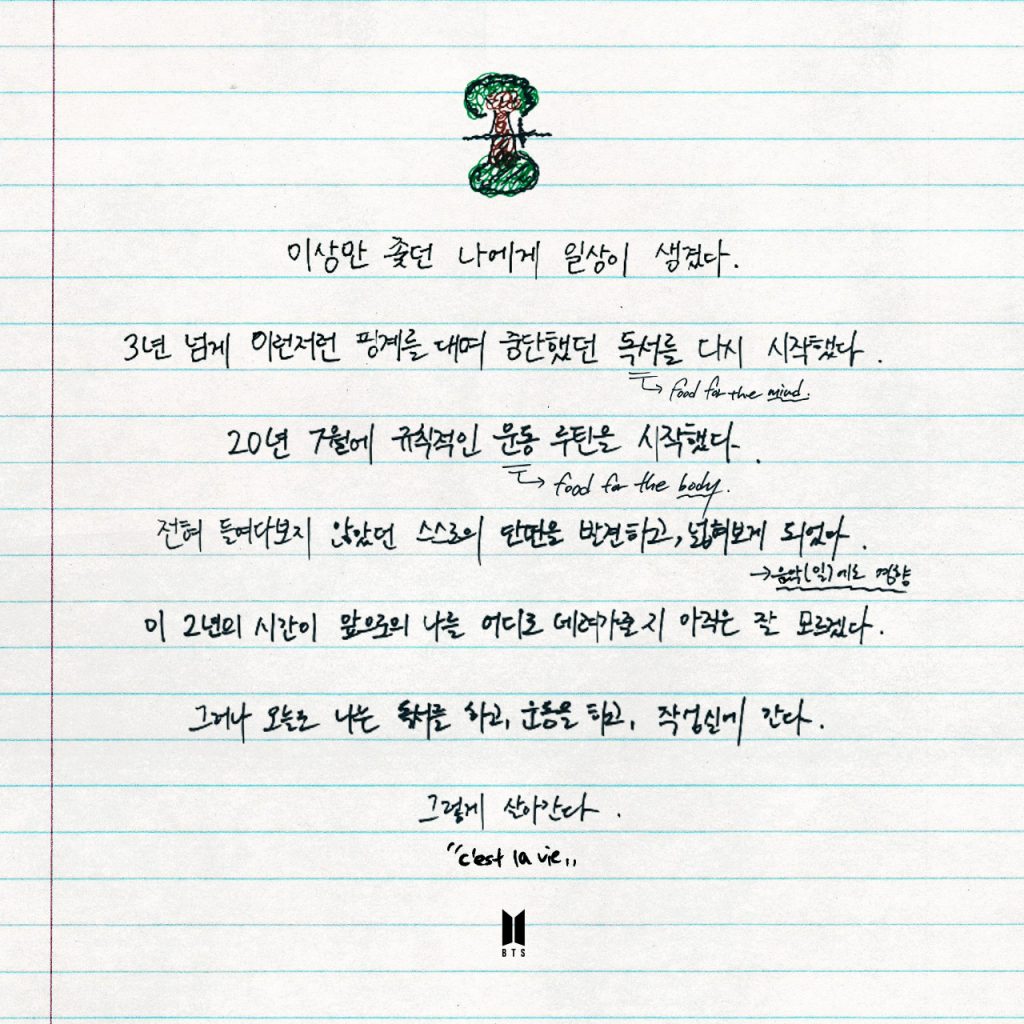 이상만 좇던 나에게 일상이 생겼다.
3년 넘게 이런저런 핑계를 대며 중단했던 독서를 다시 시작했다.
↳ food for the mind.
20년 7월에 규칙적인 운동 루틴을 시작했다.
↳ food for the body.
전혀 들여다보지 않았던 스스로의 단면을 발견하고, 넓혀보게 되었다.
→음악(일)에도 영향
이 2년의 시간이 앞으로의 나를 어디로 데려가줄지 아직은 잘 모르겠다.
그러나 오늘도 나는 독서를 하고, 운동을 하고, 작업실에 간다.
그렇게 살아간다.
"c'est la vie„
BTS